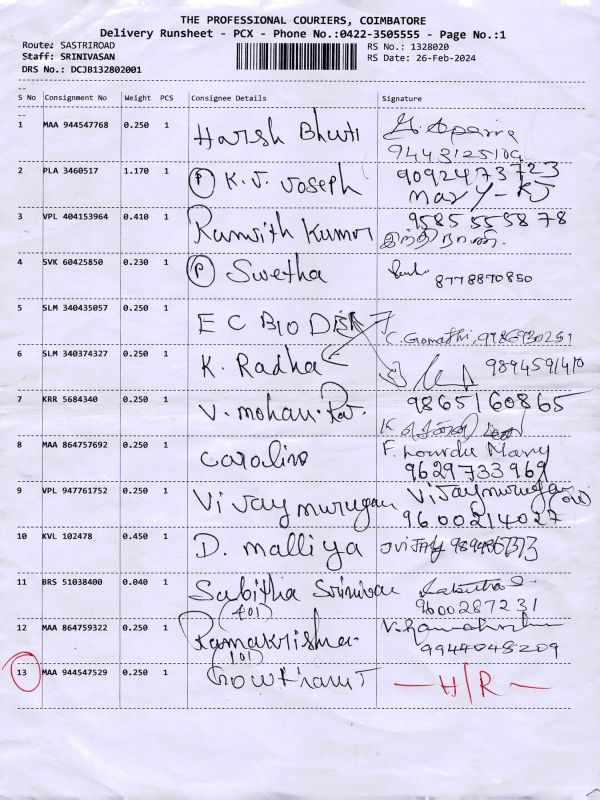 THE PROFESSIONAL COURIERS, COIMBATORE
Delivery Runsheet - PCX - Phone No.:0422-3505555 - Page No.:1
Route: SASTRIROAD
RS No.: 1328020
Staff: SRINIVASAN
RS Date: 26-Feb-2024
DRS No.: DCJB132802001
S No Consignment No Weight PCS Consignee Details Signature
1 MAA 944547768 0.250 1 Harsh Bhuti
2 PLA 3460517 1.170 1 (P) K. J. Joseph 9092473723
Mary - KJ
3 VPL 404153964 0.410 1 Ranvith Kumar 9585555878
4 SVK 60425850 0.230 1 (P) Swetha 8778870850
5 SLM 340435057 0.250 1 E C BIO C. Gomathi,
6 SLM 340374327 0.250 1 K. Radha
7 KRR 5684340 0.250 1 V. mohan. Raj. 9865160865
8 MAA 864757692 0.250 1 F. Lourdu Mary
9629733969
9 VPL 947761752 0.250 1 Vijaymurugan Vijaymurugan
9600214027
10 KVL 102478 0.450 1 D. malliya
11 BRS 51038400 0.040 1 Sabitha Srinivas
(401) 9600287231
12 MAA 864759322 0.250 1 Ramakrisha.
(101) 9944048209
13 MAA 944547529 0.250 1 Gowtham T — H/R —